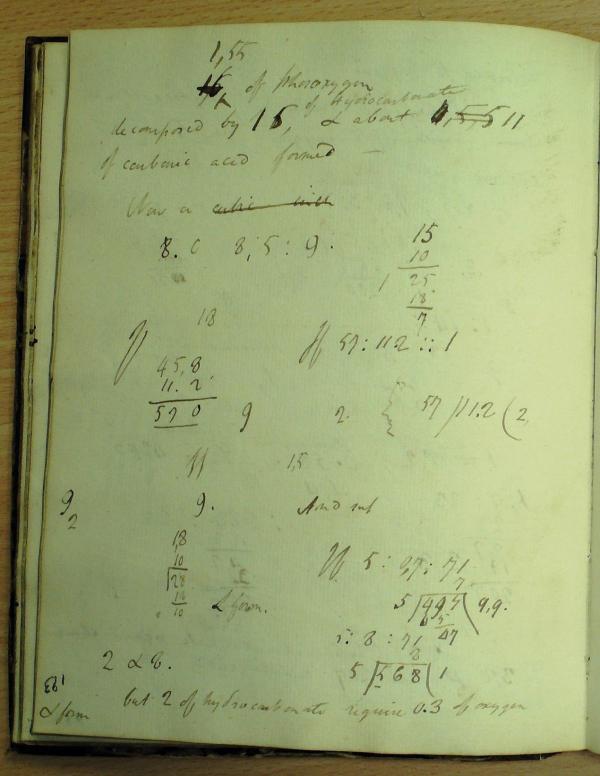 1,55
of phosoxygen
of Hydrocarbonate
decomposed by 15, & about 11
of carbonic acid formed —
Now a cubic inch
8. 0 8,5 : 9 :
15
10
1 25
18
7
18
If 57 : 112 :: 1
45,8
11.2
57 0 9 2. 57 /11.2 ( 2,
If 1,5
9
2
9. And
18
10
28
18
10
& form.
If 5 : 9,7 : 71
7
5 497 ( 9,9.
45
47
5 : 8 : 71
8
2 & 8. 5 568 ( 1
193
but 2 of hydrocarbonate require 0.3 of oxygen
& form